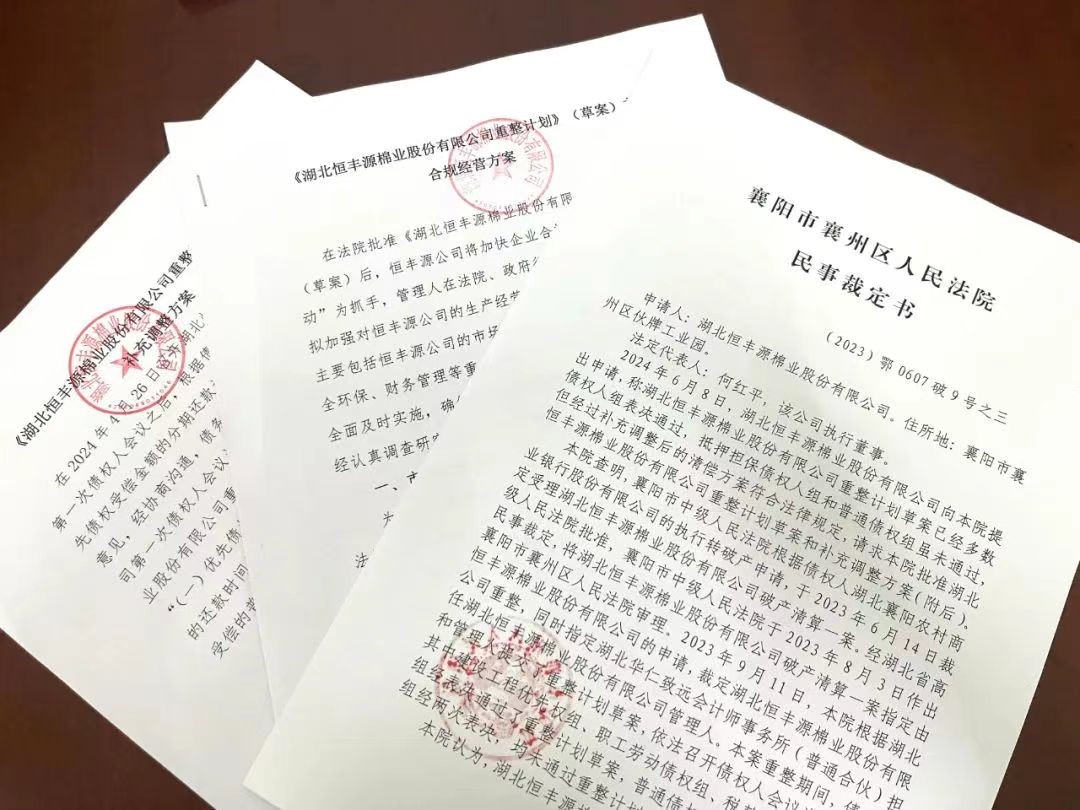 《湖北恒丰源棉业股份有限公司重整
补充调整方案
在 2024 年 4 月 26 日
第一次债权人会议之后，根据债
先债权受偿金额的分期还款
意见，经协商沟通，债务
司第一次债权人会议
业股份有限公司重
“（一）优先债
的还款时间
受偿的
《湖北恒丰源棉业股份有限公司重整计划》（草案）
合规经营方案
在法院批准《湖北恒丰源棉业股份有限
（草案）后，恒丰源公司将加快企业合
动”为抓手，管理人在法院、政府
拟加强对恒丰源公司的生产经营
主要包括恒丰源公司的市场
全环保、财务管理等重
全面及时实施，确保
经认真调查研
一、
襄阳市襄州区人民法院
民事裁定书
（2023）鄂 0607 破 9 号之三
申请人：湖北恒丰源棉业股份有限公司。住所地：襄阳市襄
州区伙牌工业园。
法定代表人：何红平，该公司执行董事。
2024 年 6 月 8 日，湖北恒丰源棉业股份有限公司向本院提
出申请，称湖北恒丰源棉业股份有限公司重整计划草案已经多数
债权人组表决通过，抵押担保债权人组和普通债权组虽未通过，
但经过补充调整后的清偿方案符合法律规定，请求本院批准湖北
恒丰源棉业股份有限公司重整计划草案和补充调整方案（附后）。
本院查明，襄阳市中级人民法院根据债权人湖北襄阳农村商
业银行股份有限公司的执行转破产申请，于 2023 年 6 月 14 日裁
定受理湖北恒丰源棉业股份有限公司破产清算一案。经湖北省高
级人民法院批准，襄阳市中级人民法院于 2023 年 8 月 3 日作出
民事裁定，将湖北恒丰源棉业股份有限公司破产清算一案指定由
襄阳市襄州区人民法院审理。2023 年 9 月 11 日，本院根据湖北
恒丰源棉业股份有限公司的申请，裁定湖北恒丰源棉业股份有限
公司重整，同时指定湖北华仁致远会计师事务所（普通合伙）担
任湖北恒丰源棉业股份有限公司管理人。本案重整期间，债
和管理人提交了重整计划草案，依法召开债权人会议
其中建设工程优先权组、职工劳动债权组、税
组表决通过了重整计划草案，普通债
组经两次表决，均未通过重整计
本院认为，湖北恒丰源